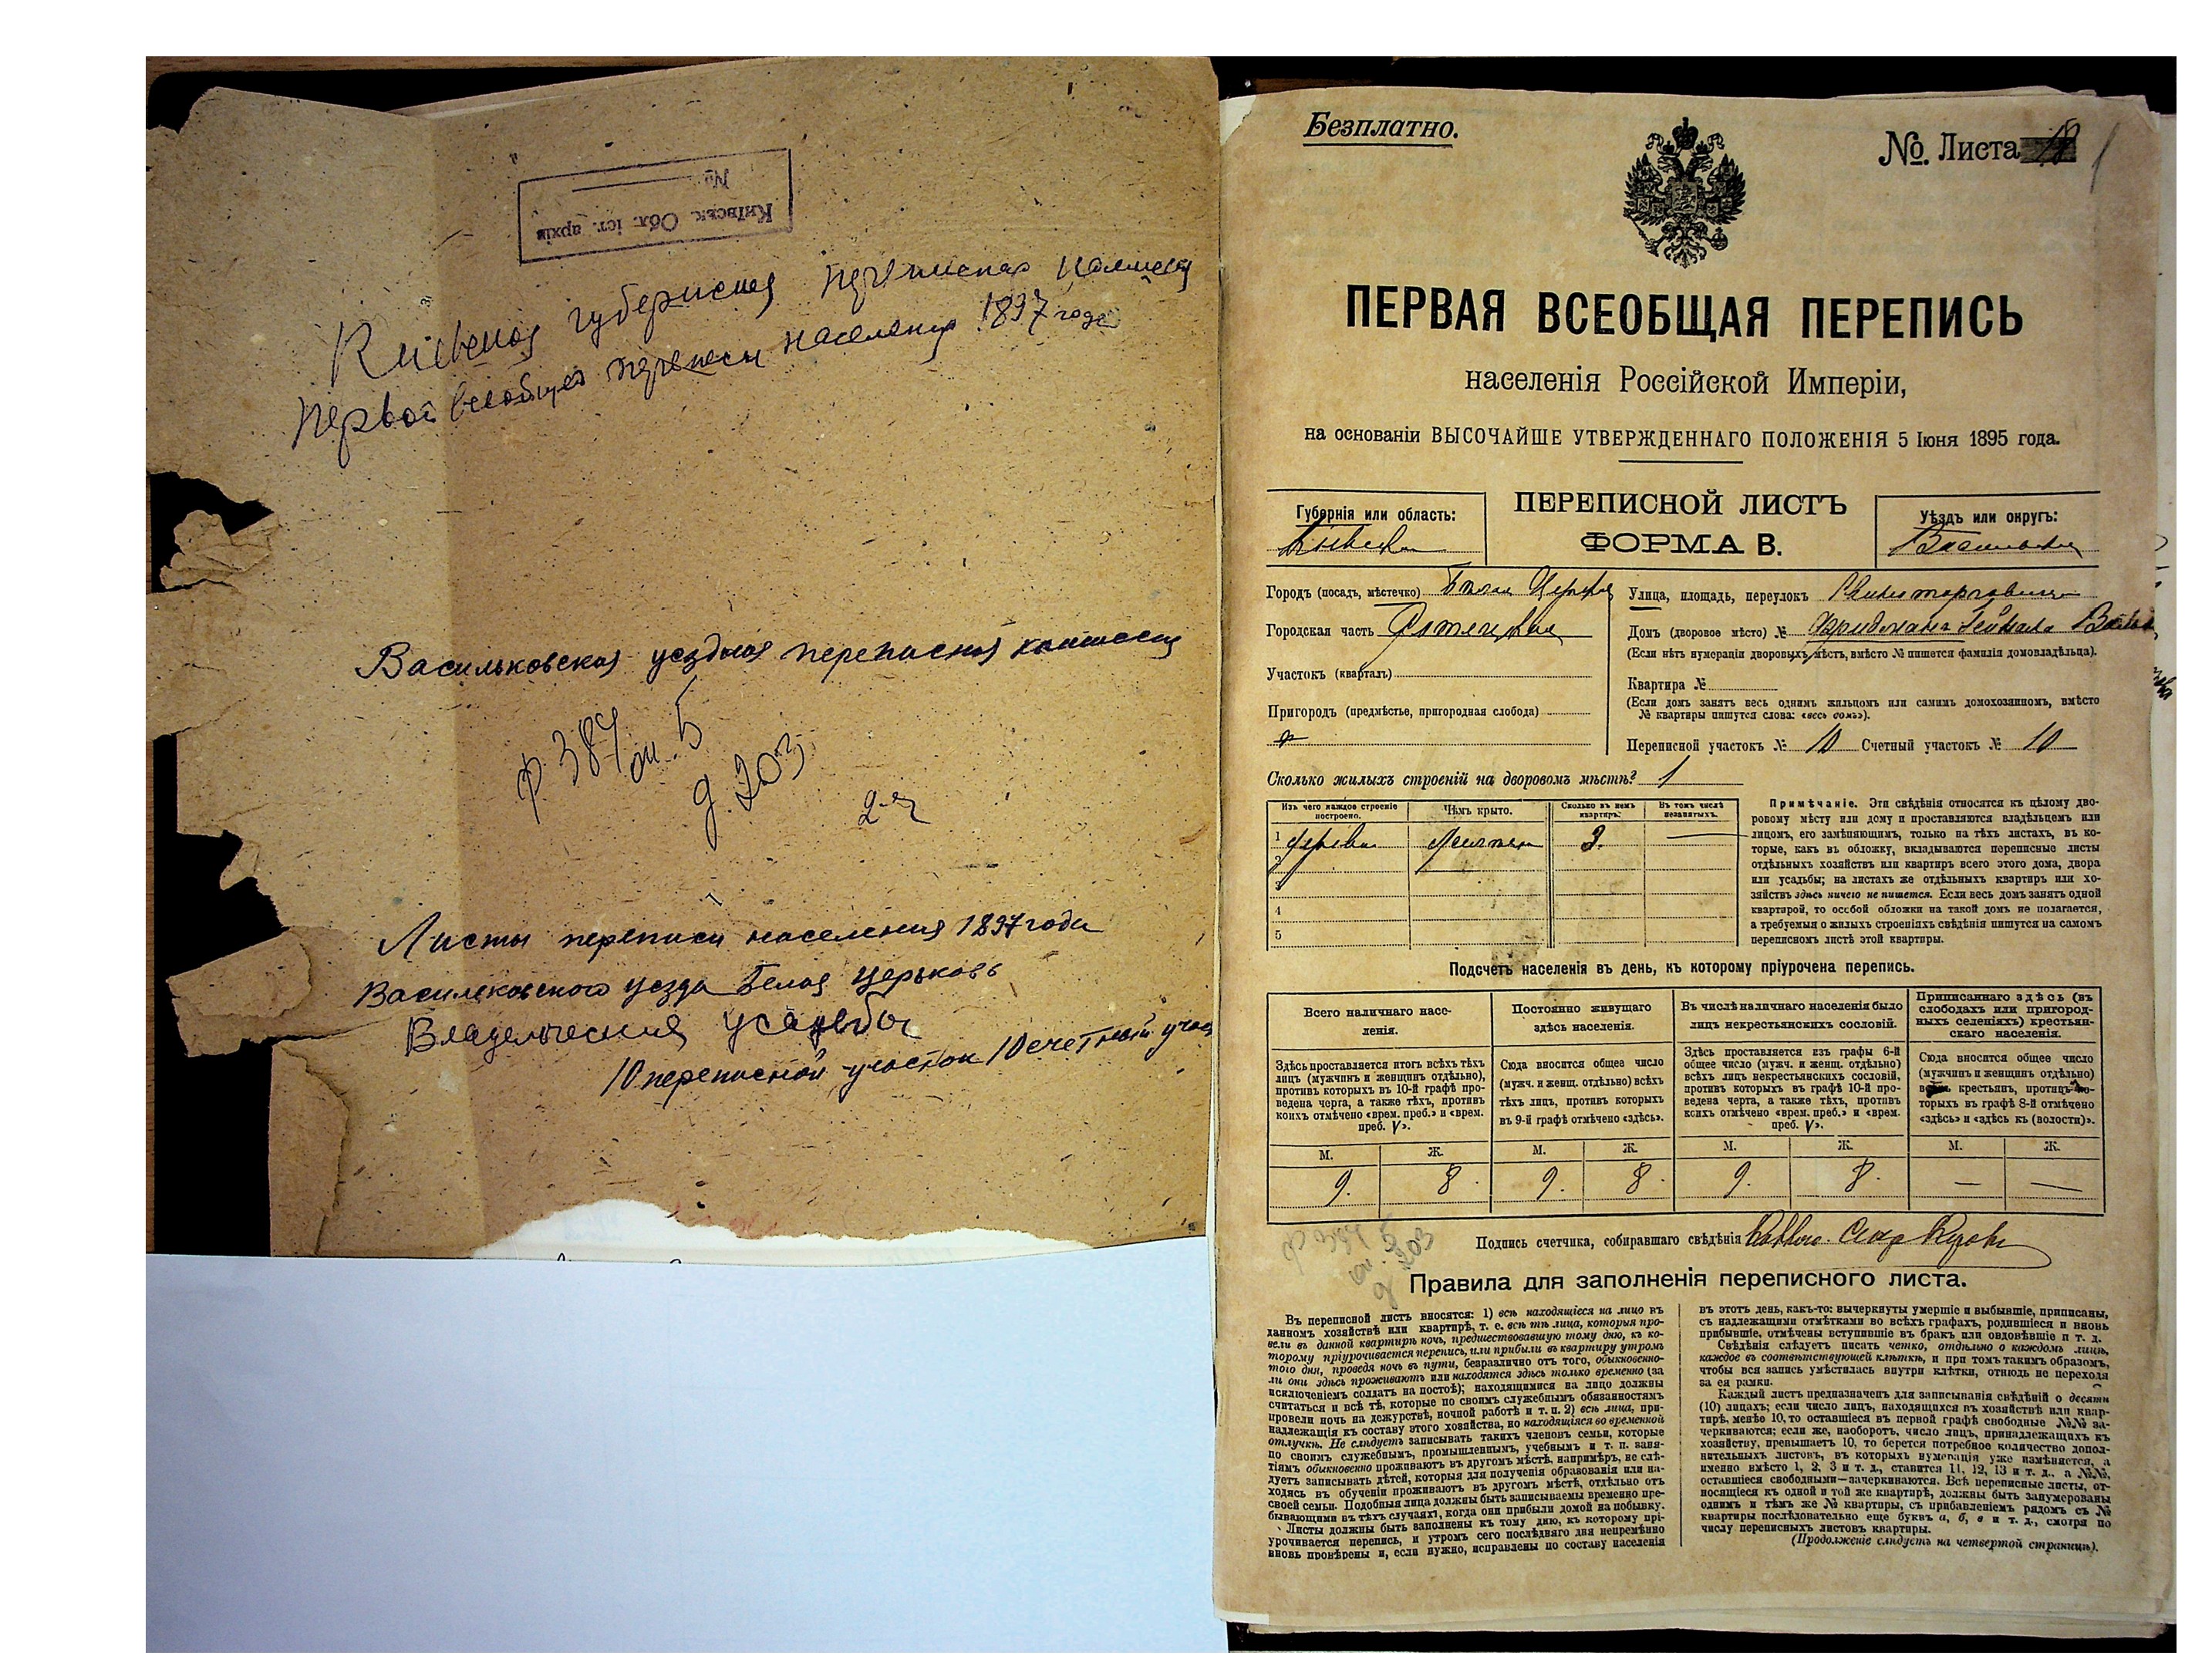 Київськ. Обл. іст. архів
№
Киевская губернская переписная комиссия
Первой всеобщей переписи населения 1897 года
Васильковская уездная переписная комиссия
ф. 384 оп. 5
д. 203
2-я
Листы переписи населения 1897 года
Васильковского уезда Белая Церковь
Владельческия усадьбы
10 переписной участок 10 счетный учас
Безплатно.
№. Листа 1
ПЕРВАЯ ВСЕОБЩАЯ ПЕРЕПИСЬ
населенія Россійской Имперіи,
на основаніи ВЫСОЧАЙШЕ УТВЕРЖДЕННАГО ПОЛОЖЕНІЯ 5 Іюня 1895 года.
Губернія или область:
Кіевская
ПЕРЕПИСНОЙ ЛИСТЪ
ФОРМА В.
Уѣздъ или округъ:
Васильков
Городъ (посадъ, мѣстечко) Бѣлая Церковь
Городская часть
Участокъ (кварталъ)
Пригородъ (предмѣстье, пригородная слобода)
Улица, площадь, переулокъ
Домъ (дворовое мѣсто) № Фридмана
(Если нѣтъ нумераціи дворовыхъ мѣстъ, вмѣсто № пишется фамилія домовладѣльца).
Квартира №
(Если домъ занятъ весь однимъ жильцомъ или самимъ домохозяиномъ, вмѣсто
№ квартиры пишутся слова: «весь домъ»).
Переписной участокъ № 10 Счетный участокъ № 10
Сколько жилыхъ строеній на дворовомъ мѣстѣ? 1
Изъ чего каждое строеніе построено. Чѣмъ крыто. Сколько въ немъ квартиръ. Въ томъ числѣ незанятыхъ.
1 дерева 2. —
2
3
4
5
Примѣчаніе. Эти свѣдѣнія относятся къ цѣлому дво-
ровому мѣсту или дому и проставляются владѣльцемъ или
лицомъ, его замѣняющимъ, только на тѣхъ листахъ, въ ко-
торые, какъ въ обложку, вкладываются переписные листы
отдѣльныхъ хозяйствъ или квартиръ всего этого дома, двора
или усадьбы; на листахъ же отдѣльныхъ квартиръ или хо-
зяйствъ здѣсь ничего не пишется. Если весь домъ занятъ одной
квартирой, то особой обложки на такой домъ не полагается,
а требуемыя о жилыхъ строеніяхъ свѣдѣнія пишутся на самомъ
переписномъ листѣ этой квартиры.
Подсчетъ населенія въ день, къ которому пріурочена перепись.
Всего наличнаго насе-
ленія.
Здѣсь проставляется итогъ всѣхъ тѣхъ
лицъ (мужчинъ и женщинъ отдѣльно),
противъ которыхъ въ 10-й графѣ про-
ведена черта, а также тѣхъ, противъ
коихъ отмѣчено «врем. преб.» и «врем.
преб. V».
Постоянно живущаго
здѣсь населенія.
Сюда вносится общее число
(мужч. и женщ. отдѣльно) всѣхъ
тѣхъ лицъ, противъ которыхъ
въ 9-й графѣ отмѣчено «здѣсь».
Въ числѣ наличнаго населенія было
лицъ некрестьянскихъ сословій.
Здѣсь проставляется изъ графы 6-й
общее число (мужч. и женщ. отдѣльно)
всѣхъ лицъ некрестьянскихъ сословій,
противъ которыхъ въ графѣ 10-й про-
ведена черта, а также тѣхъ, противъ
коихъ отмѣчено «врем. преб.» и «врем.
преб. V».
Приписаннаго здѣсь (въ
слободахъ или пригород-
ныхъ селеніяхъ) крестьян-
скаго населенія.
Сюда вносится общее число
(мужчинъ и женщинъ отдѣльно)
всѣхъ крестьянъ, противъ ко-
торыхъ въ графѣ 8-й отмѣчено
«здѣсь» и «здѣсь къ (волости)».
М. Ж. М. Ж. М. Ж. М. Ж.
9. 8. 9. 8. 9. 8. — —
ф 384
оп. 5
д 203
Подпись счетчика, собиравшаго свѣдѣнія
Правила для заполненія переписного листа.
Въ переписной листъ вносятся: 1) всѣ находящіеся на лицо въ
данномъ хозяйствѣ или квартирѣ, т. е. всѣ тѣ лица, которыя про-
вели въ данной квартирѣ ночь, предшествовавшую тому дню, къ ко-
торому пріурочивается перепись, или прибыли въ квартиру утромъ
того дня, проведя ночь въ пути, безразлично отъ того, обыкновенно-
ли они здѣсь проживаютъ или находятся здѣсь только временно (за
исключеніемъ солдатъ на постоѣ); находящимися на лицо должны
считаться и всѣ тѣ, которые по своимъ служебнымъ обязанностямъ
провели ночь на дежурствѣ, ночной работѣ и т. п. 2) всѣ лица, при-
надлежащія къ составу этого хозяйства, но находящіяся во временной
отлучкѣ. Не слѣдуетъ записывать такихъ членовъ семьи, которые
по своимъ служебнымъ, промышленнымъ, учебнымъ и т. п. заня-
тіямъ обыкновенно проживаютъ въ другомъ мѣстѣ, напримѣръ, не слѣ-
дуетъ записывать дѣтей, которыя для полученія образованія или на-
ходясь въ обученіи проживаютъ въ другомъ мѣстѣ, отдѣльно отъ
своей семьи. Подобныя лица должны быть записываемы временно пре-
бывающими въ тѣхъ случаяхъ, когда они прибыли домой на побывку.
Листы должны быть заполнены къ тому дню, къ которому прі-
урочивается перепись, и утромъ сего послѣдняго дня непремѣнно
вновь провѣрены и, если нужно, исправлены по составу населенія
въ этотъ день, какъ-то: вычеркнуты умершіе и выбывшіе, приписаны,
съ надлежащими отмѣтками во всѣхъ графахъ, родившіеся и вновь
прибывшіе, отмѣчены вступившіе въ бракъ или овдовѣвшіе и т. д.
Свѣдѣнія слѣдуетъ писать четко, отдѣльно о каждомъ лицѣ,
каждое въ соотвѣтствующей клѣткѣ, и при томъ такимъ образомъ,
чтобы вся запись умѣстилась внутри клѣтки, отнюдь не переходя
за ея рамки.
Каждый листъ предназначенъ для записыванія свѣдѣній о десяти
(10) лицахъ; если число лицъ, находящихся въ хозяйствѣ или квар-
тирѣ, менѣе 10, то оставшіеся въ первой графѣ свободные №№ за-
черкиваются; если же, наоборотъ, число лицъ, принадлежащихъ къ
хозяйству, превышаетъ 10, то берется потребное количество допол-
нительныхъ листовъ, въ которыхъ нумерація уже измѣняется, а
именно вмѣсто 1, 2, 3 и т. д., ставится 11, 12, 13 и т. д., а №№,
оставшіеся свободными—зачеркиваются. Всѣ переписные листы, от-
носящіеся къ одной и той же квартирѣ, должны быть занумерованы
однимъ и тѣмъ же № квартиры, съ прибавленіемъ рядомъ съ №
квартиры послѣдовательно еще буквъ а, б, в и т. д., смотря по
числу переписныхъ листовъ квартиры.
(Продолженіе слѣдуетъ на четвертой страницѣ).